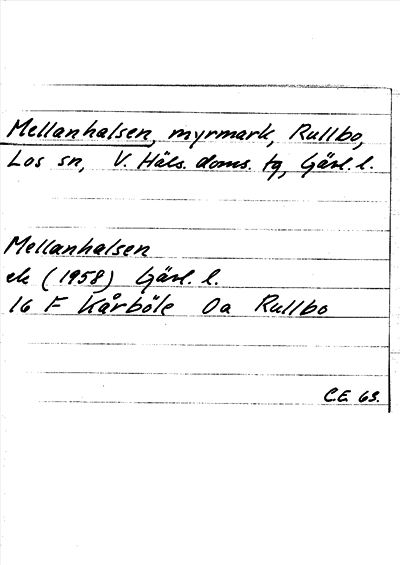 Mellanhalsen, myrmark, Rullbo,
Los sn, V. Häls. doms. tg, Gävl. l.
Mellanhalsen
ek (1958) Gävl. l.
16 F Kårböle 0a Rullbo
C.E. 63.